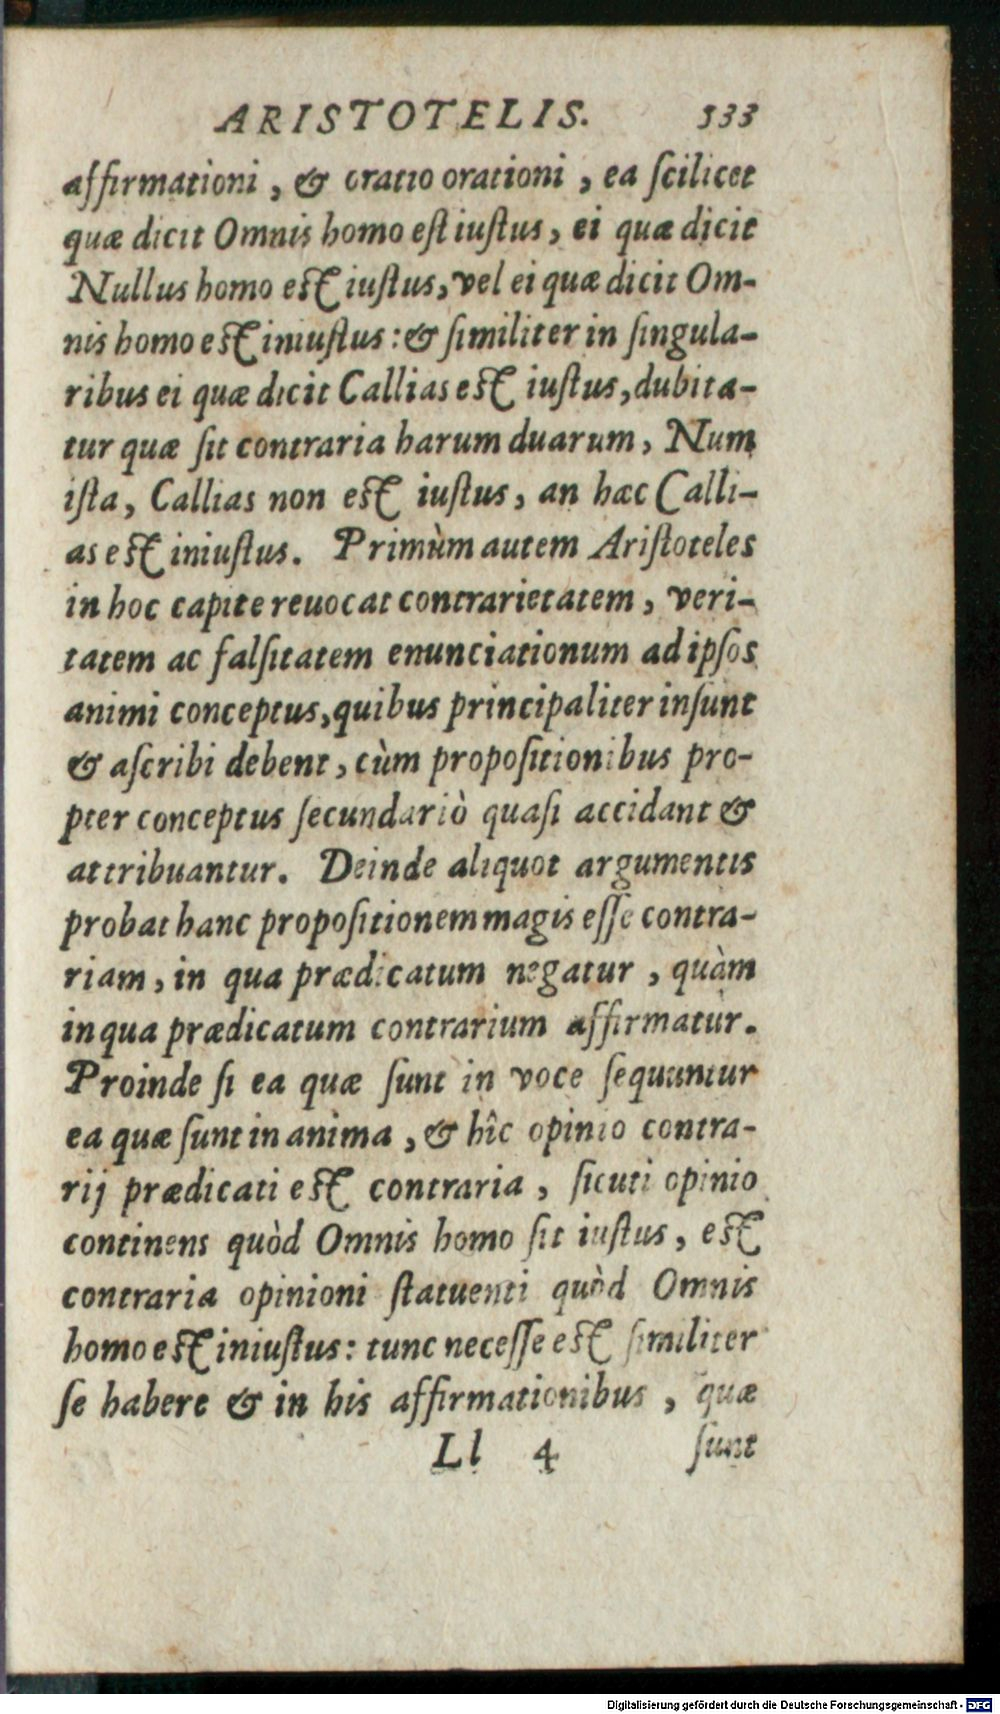 ARISTOTELIS. 533
affirmationi, & oratio orationi, ea ſcilicet
quæ dicit Omnis homo eſt iuſtus, ei quæ dicit
Nullus homo eſt iuſtus, vel ei quæ dicit Om-
nis homo eſt iniuſtus: & ſimiliter in ſingula-
ribus ei quæ dicit Callias eſt iuſtus, dubita-
tur quæ ſit contraria harum duarum, Num
iſta, Callias non eſt iuſtus, an hæc Calli-
as eſt iniuſtus. Primùm autem Ariſtoteles
in hoc capite reuocat contrarietatem, veri-
tatem ac falſitatem enunciationum ad ipſos
animi conceptus, quibus principaliter inſunt
& aſcribi debent, cùm propoſitionibus pro-
pter conceptus ſecundariò quaſi accidant &
attribuantur. Deinde aliquot argumentis
probat hanc propoſitionem magis eſſe contra-
riam, in qua prædicatum negatur, quàm
in qua prædicatum contrarium affirmatur.
Proinde ſi ea quæ ſunt in voce ſequuntur
ea quæ ſunt in anima, & hîc opinio contra-
rij prædicati eſt contraria, ſicuti opinio
continens quòd Omnis homo ſit iuſtus, eſt
contraria opinioni ſtatuenti quòd Omnis
homo eſt iniuſtus: tunc neceſſe eſt ſimiliter
ſe habere & in his affirmationibus, quæ
Ll 4 ſunt
Digitalisierung gefördert durch die Deutsche Forschungsgemeinschaft - DFG